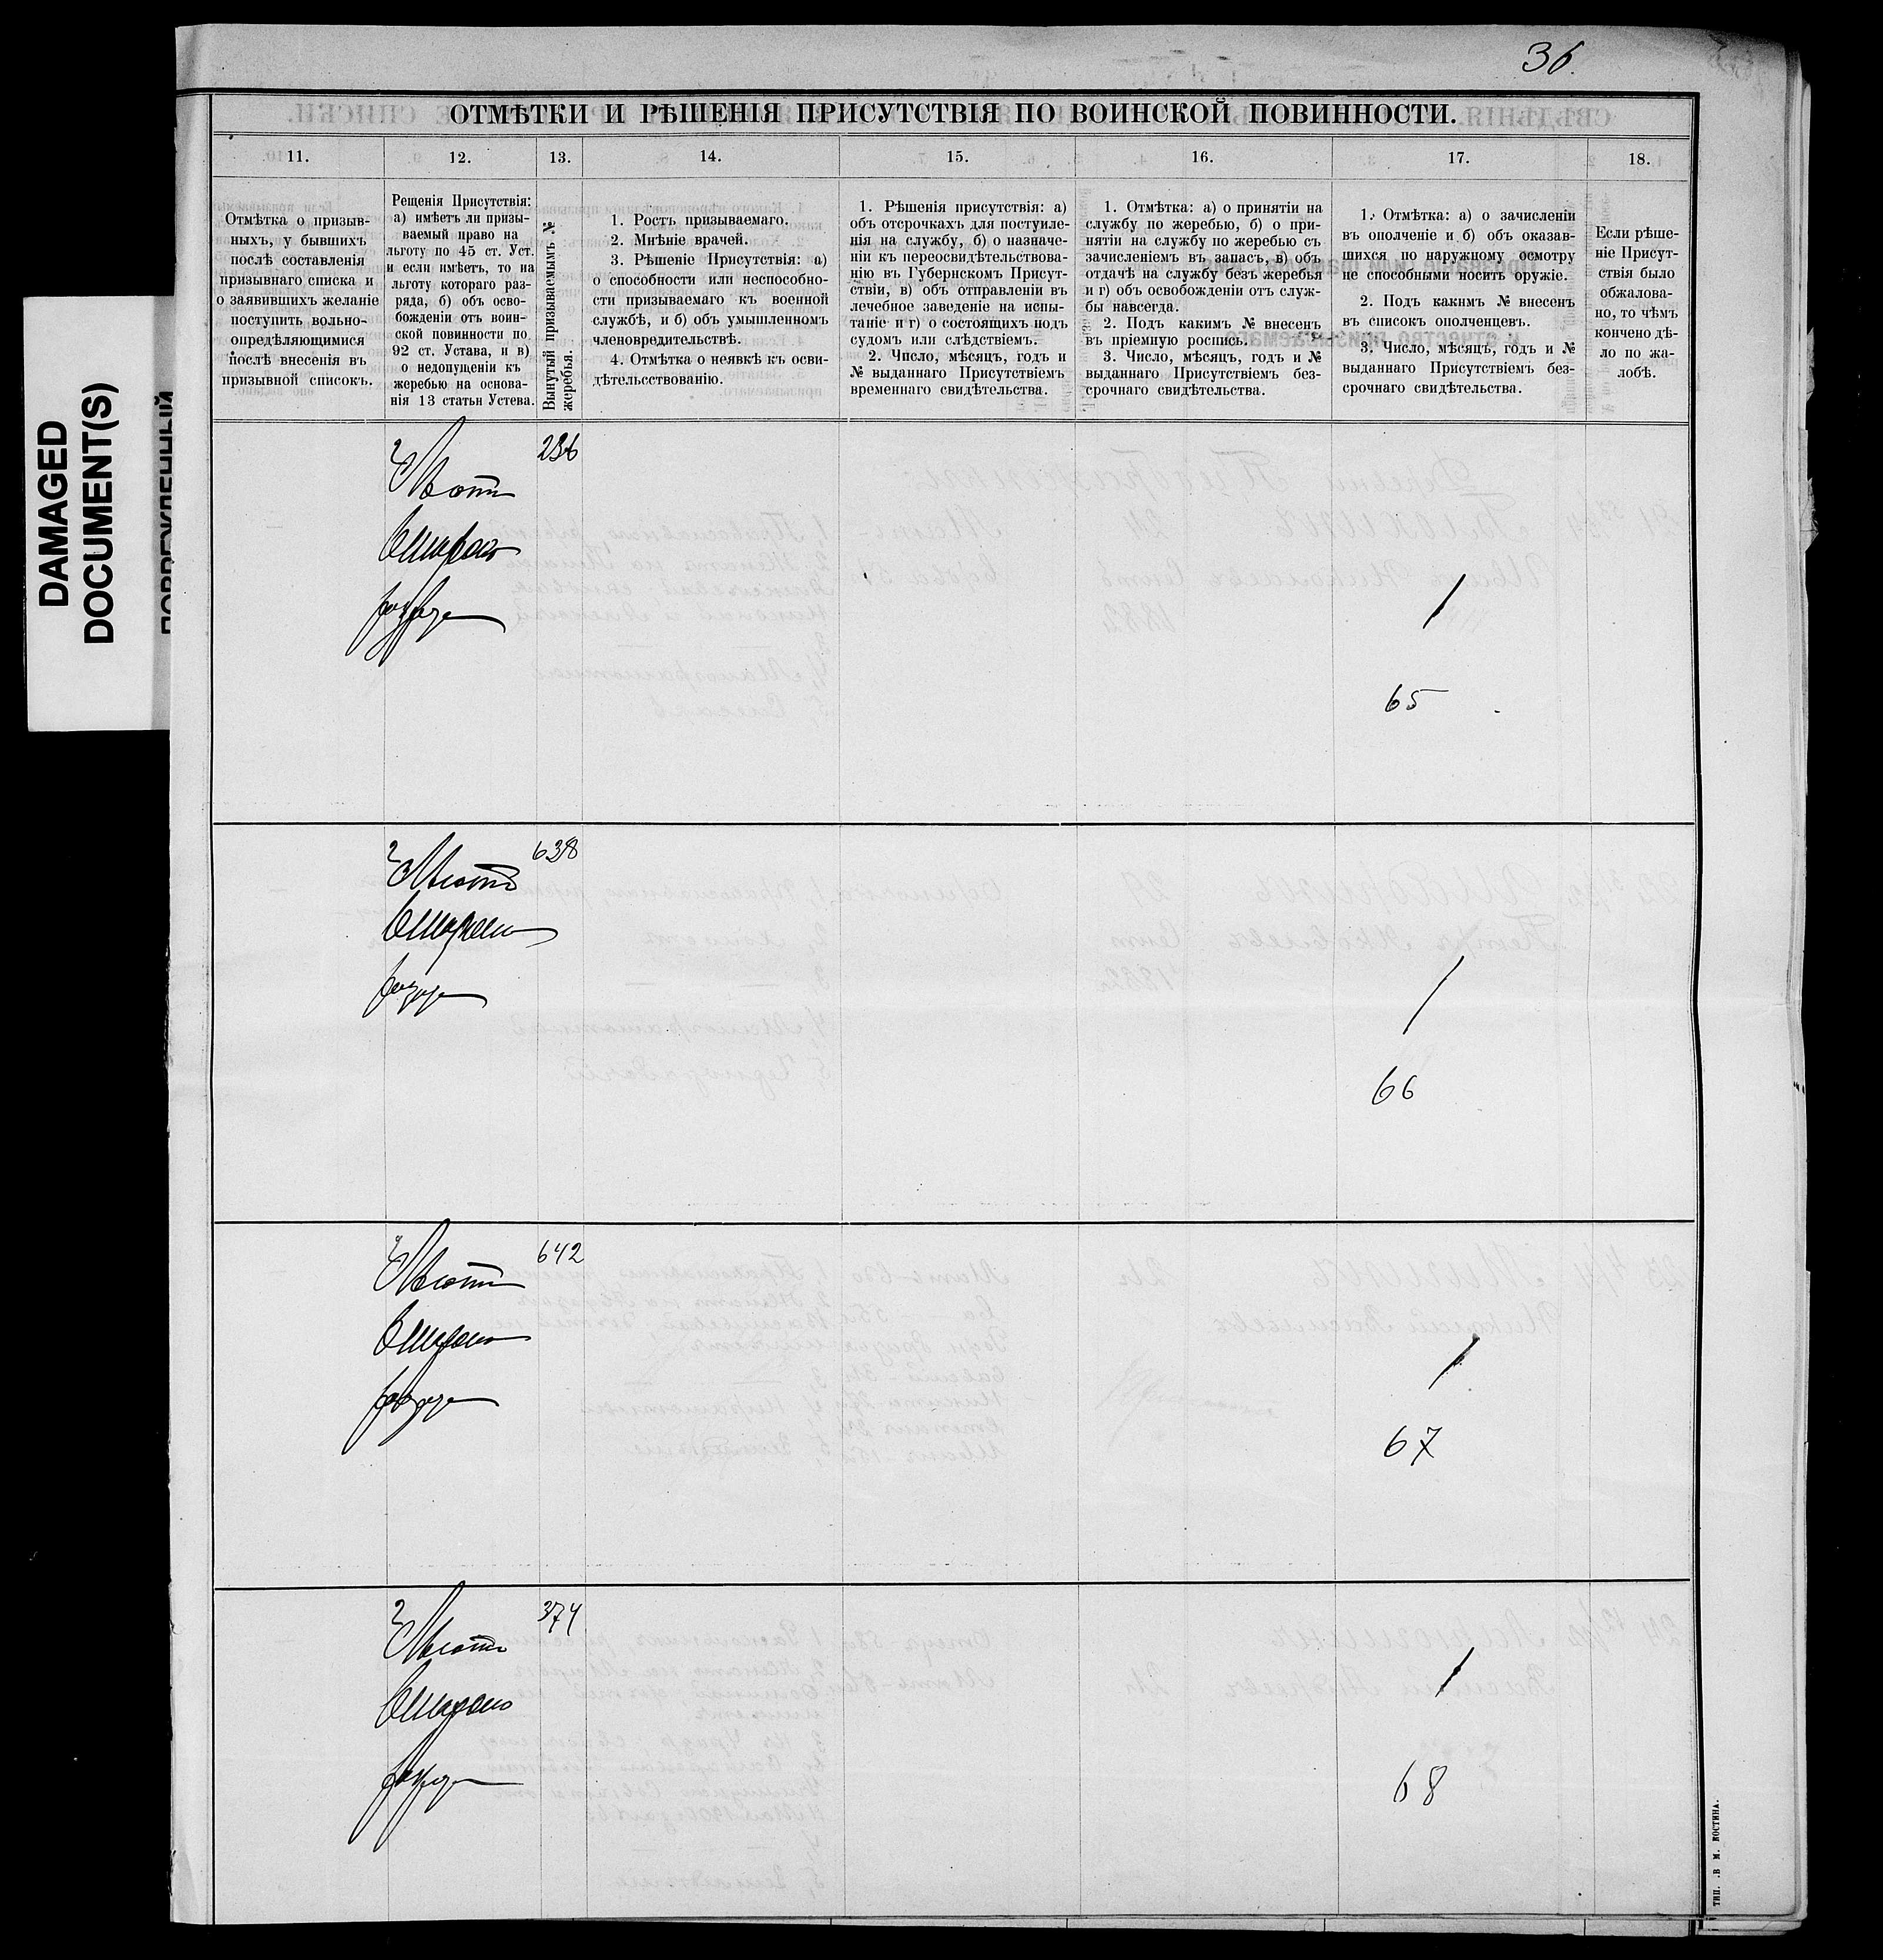 36.
ОТМѢТКИ И РѢШЕНІЯ ПРИСУТСТВІЯ ПО ВОИНСКОЙ ПОВИННОСТИ.
11.
12.
13.
14.
15.
16.
17.
18.
Отмѣтка о призыв-
ныхъ, у бывшихъ
послѣ составленія
призывнаго списка и
о заявившихъ желаніе
поступить вольно-
опредѣляющимися
послѣ внесенія въ
призывной списокъ.
Рещенія Присутствія:
а) имѣетъ ли призы-
ваемый право на
льготу по 45 ст. Уст.
и если имѣетъ, то на
льготу котораго раз-
ряда, б) объ осво-
божденіи отъ воин-
ской повинности по
92 ст. Устава, и в)
о недопущеніи къ
жеребью на основа-
нія 13 статьи Устева.
Вынутый призываемымъ №
жеребья.
1. Ростъ призываемаго.
2. Мнѣніе врачей.
3. Рѣшеніе Присутствія: а)
о способности или неспособно-
сти призываемаго къ военной
службѣ, и б) объ умышленномъ
членовредительствѣ.
4. Отмѣтка о неявкѣ къ осви-
дѣтельсствованію.
1. Рѣшенія присутствія: а)
объ отсрочкахъ для поступле-
нія на службу, б) о назначе-
ніи къ переосвидѣтельствова-
нію въ Губернскомъ Присут-
ствіи, в) объ отправленіи въ
лечебное заведеніе на испы-
таніе и г) о состоящихъ подъ
судомъ или слѣдствіемъ.
2. Число, мѣсяцъ, годъ и
№ выданнаго Присутствіемъ
временнаго свидѣтельства.
1. Отмѣтка: а) о принятіи на
службу по жеребью, б) о при-
нятіи на службу по жеребью съ
зачисленіемъ въ запасъ, в) объ
отдачѣ на службу безъ жеребья
и г) объ освобожденіи отъ служ-
бы навсегда.
2. Подъ какимъ № внесенъ
въ пріемную роспись.
3. Число, мѣсяцъ, годъ и №
выданнаго Присутствіемъ без-
срочнаго свидѣтельства.
1. Отмѣтка: а) о зачисленіи
въ ополченіе и б) объ оказав-
шихся по наружному осмотру
не способными носить оружіе.
2. Подъ какимъ № внесенъ
въ списокъ ополченцевъ.
3. Число, мѣсяцъ, годъ и №
выданнаго Присутствіемъ без-
срочнаго свидѣтельства.
Если рѣше-
ніе Присут-
ствія было
обжалова-
но, то чѣмъ
кончено дѣ-
ло по жа-
лобѣ.
DAMAGED
DOCUMENT(S)
236
разряда
65
638
разряда
66
642
разряда
67
374
разряда
68
ТИП. В. М. КОСТИНА.